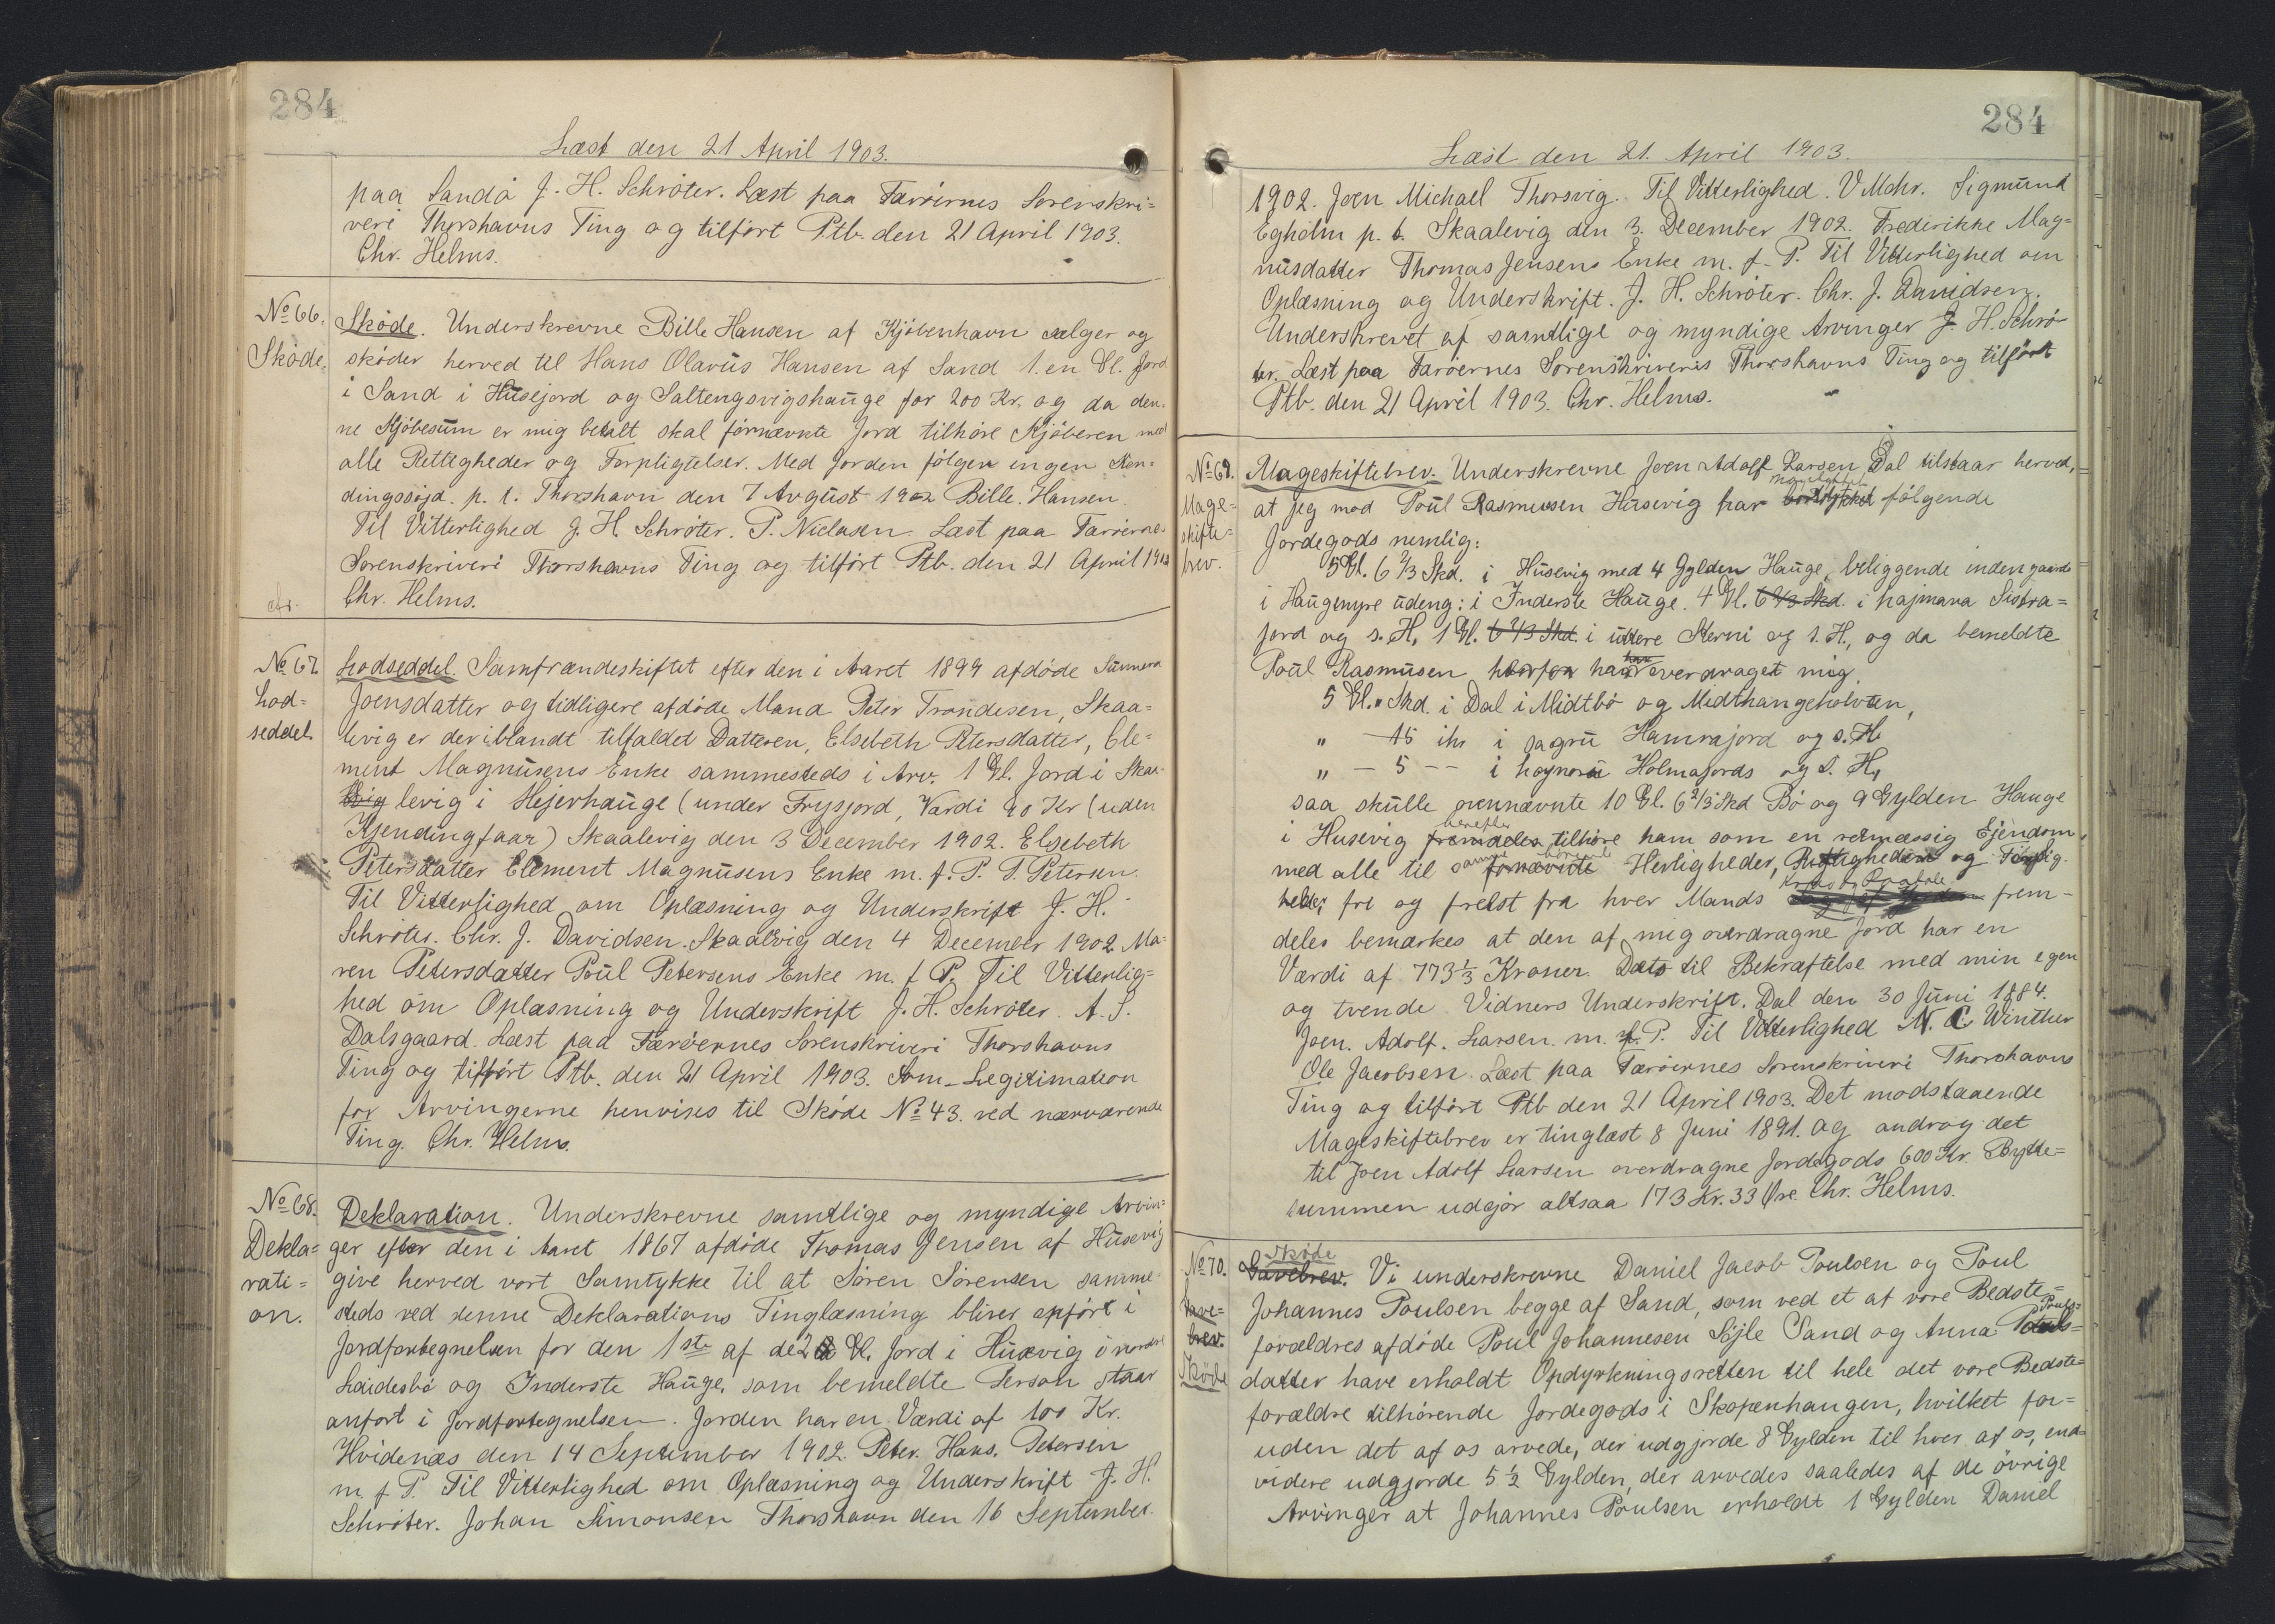 284
Læst den 21 April 1903.
paa Sandø J. H. Schrøter. Læst paa Færøernes Sorenskri=
veri Thorshavns Ting og tilført Ptb. den 21 April 1903.
Chr. Helms.
No 66.
Skøde.
Skøde. Underskrevne Bille Hansen af Kjøbenhavn sælger og
skøder herved til Hans Olavus Hansen af Sand 1. en Gl. Jord
i Sand i Husejord og Saltengsvigshauge for 200 Kr. og da den=
ne Kjøbesum er mig betalt skal førnævnte Jord tilhøre Kjøberen med
alle Rettigheder og Forpligtelser. Med Jorden følger ingen Ken=
dingssøjd. p. t. Thorshavn den 7 August 1902 Bille. Hansen
Til Vitterlighed J. H. Schrøter. P. Niclasen. Læst paa Færøernes
Sorenskriveri Thorshavns Ting og tilført Ptb. den 21 April 1903
Chr. Helms.
No 67.
Lod=
seddel.
Lodseddel. Samfrændeskiftet efter den i Aaret 1899 afdøde Sunneva
Joensdatter og tidligere afdøde Mand Peter Trondesen, Skaa=
levig er deriblandt tilfaldet Datteren, Elsebeth Petersdatter, Cle=
ment Magnusens Enke sammesteds i Arv. 1 Gl. Jord i Skaa-
levig i Hejerhauge (under Frysjord, Værdi 90 Kr (uden
Kjendingfaar) Skaalevig den 3 December 1902. Elsebeth
Petersdatter Clement Magnusens Enke m. f. P. P. Petersen.
Til Vitterlighed om Oplæsning og Underskrift J. H.
Schrøter. Chr. J. Davidsen. Skaalevig den 4 December 1902 Ma=
ren Petersdatter Poul Petersens Enke m. f P. Til Vitterlig=
hed om Oplæsning og Underskrift J. H. Schrøter. A. S.
Dalsgaard. Læst paa Færøernes Sorenskriveri Thorshavns
Ting og tilført Ptb. den 21 April 1903. Som Legitimation
for Arvingerne henvises til Skøde No 43. ved nærværende
Ting. Chr. Helms.
No 68.
Dekla=
rati=
on.
Deklaration. Underskrevne samtlige og myndige Arvin=
ger efter den i Aaret 1867 afdøde Thomas Jensen af Husevig
give herved vort Samtykke til at Søren Sørensen samme
steds ved denne Deklarations Tinglæsning bliver opført i
Jordfortegnelsen for den 1ste af de 2 Gl. Jord i Husevig i nordre
Laidesbø og Inderste Hauge, som bemeldte Person staar
anført i Jordfortegnelsen. Jorden har en Værdi af 100 Kr.
Hvidenæs den 14 September 1902. Peter. Hans. Petersen
m f P. Til Vitterlighed om Oplæsning og Underskrift J. H.
Schrøter. Johan Simonsen Thorshavn den 16 September.
284
Læst den 21. April 1903.
1902. Joen Michael Thorsvig. Til Vitterlighed. V Mohr. Sigmund
Egholm p. t. Skaalevig den 3. December 1902. Frederikke Mag=
nusdatter Thomas Jensens Enke m. f. P. Til Vitterlighed om
Oplæsning og Underskrift. J. H. Schrøter. Chr. J. Davidsen.
Underskrevet af samtlige og myndige Arvinger J. H. Schrø
ter. Læst paa Færøernes Sorenskriveris Thorshavns Ting og tilført
Ptb. den 21 April 1903. Chr. Helms.
No 69.
Mage=
skifte=
brev.
Mageskiftebrev. Underskrevne Joen Adolf Larsen, Dal tilstaar herved,
at jeg mod Poul Rasmussen Husevig har mageskiftet følgende
Jordegods nemlig:
5 Gl. 6 2/3 Skd. i Husevig med 4 Gylden Hauge, beliggende indengaards
i Haugmyre udeng: i Inderste Hauge. 4 Gl. 6 2/3 Skd. i hajmara Sistra=
jord og s. H, 1 Gl. 6 2/3 Skd. i uttere Sterni og s. H., og da bemeldte
Poul Rasmusen har overdraget mig,
5 Gl. " Skd. i Dal i Midtbø og Midthangeholvten,
" — 15 ihr i Hamrajord og s. H.
" — 5 — — i Holmajords og s. H,
saa skulle ovennævnte 10 Gl. 6 2/3 Skd Bø og 9 Gylden Hauge
i Husevig herefter tilhøre ham som en retmæssig Ejendom
med alle til samme hørende Herligheder, Rettigheder og
heder fri og frelst fra hver Mands frem-
deles bemærkes at den af mig overdragne Jord har en
Værdi af 773 1/3 Kroner. Dets til Bekræftelse med min egen
og tvende Vidners Underskrift. Dal den 30 Juni 1884.
Joen. Adolf. Larsen. m. f. P. Til Vitterlighed N. C. Winther
Ole Jacobsen. Læst paa Færøernes Sorenskriveri Thorshavns
Ting og tilført Ptb den 21 April 1903. Det modstaaende
Mageskiftebrev er tinglæst 8 Juni 1891. og androg det
til Joen Adolf Larsen overdragne Jordegods 600 Kr. Bytte=
summen udgjør altsaa 173 Kr. 33 Øre. Chr. Helms.
No 70.
Gave=
brev.
Skøde
Skøde
Gavebrev. Vi underskrevne Daniel Jacob Poulsen og Poul
Johannes Poulsen begge af Sand, som ved et af vore Bedste=
forældres afdøde Poul Johannesen Søjle Sand og Anna Pouls=
datter have erholdt Opdyrkningsretten til hele det vore Bedste=
forældre tilhørende Jordegods i Skopenhaugen, hvilket for=
uden det af os arvede, der udgjorde 8 Gylden til hver af os, end=
videre udgjorde 5 1/2 Gylden, der arvedes saaledes af de øvrige
Arvinger at Johannes Poulsen erholdt 1 Gylden Daniel